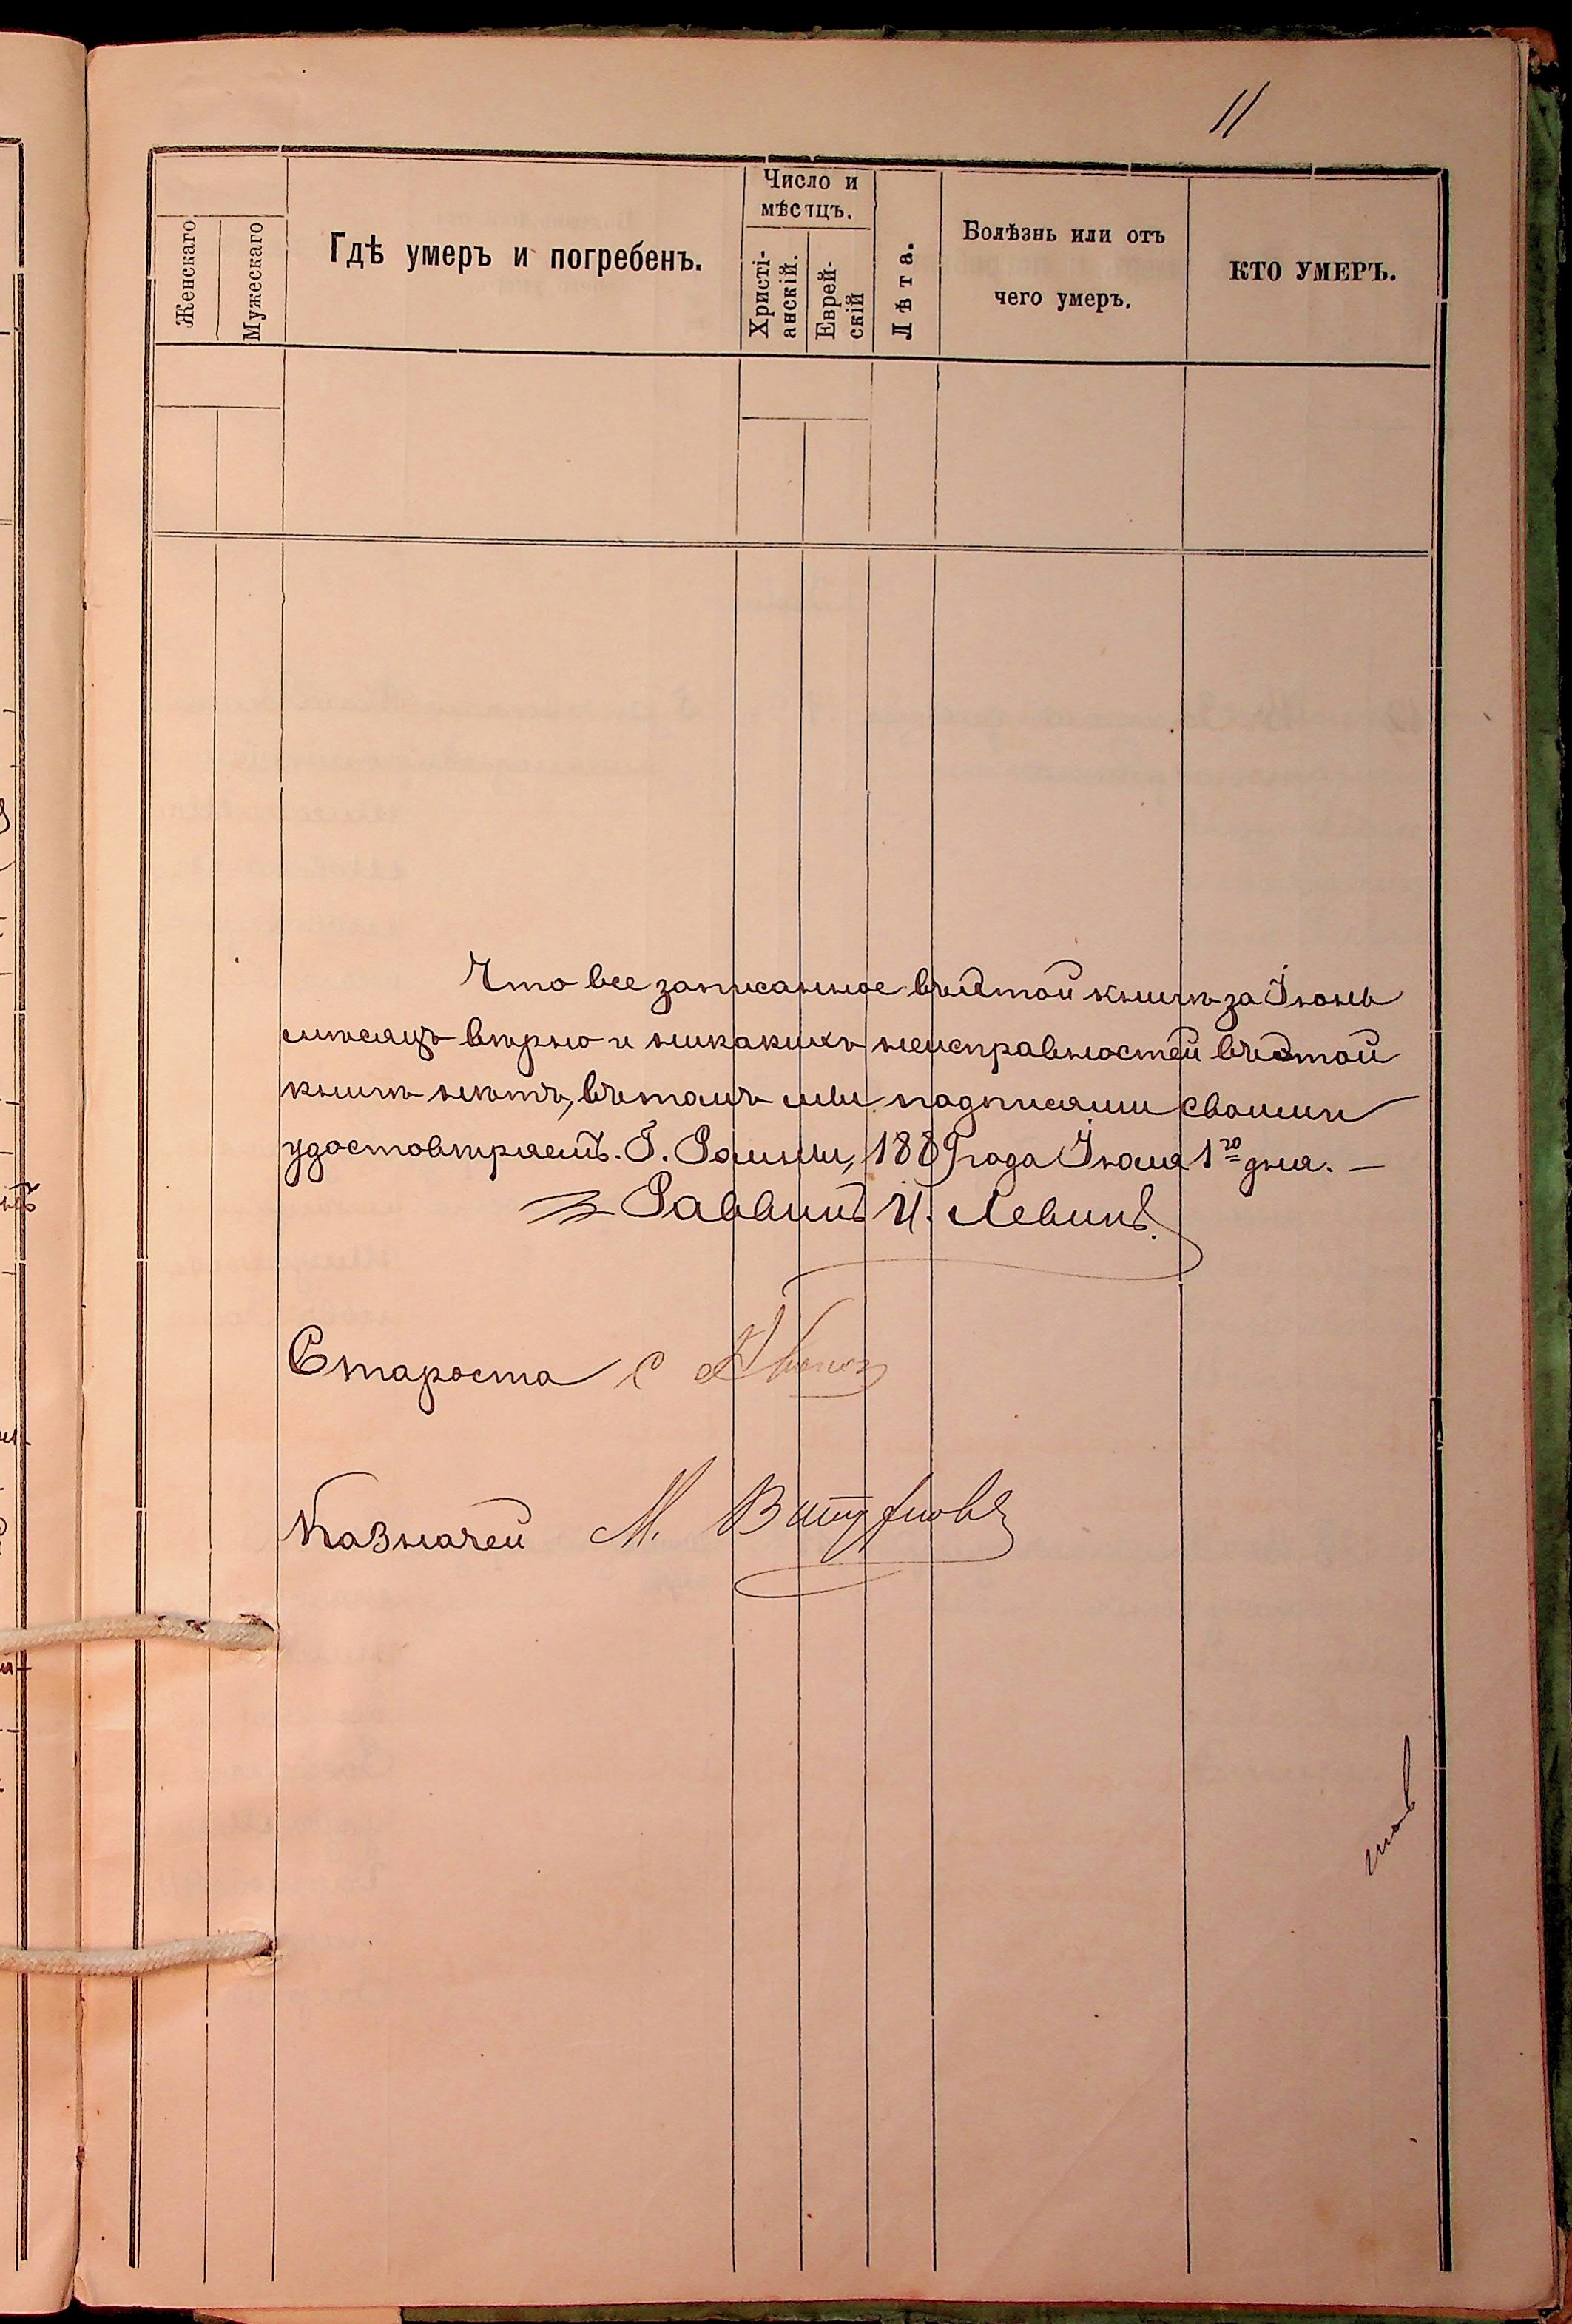 11
Женскаго
Мужескаго
Гдѣ умеръ и погребенъ.
Число и
мѣсяцъ.
Христі-
анскій.
Еврей-
скій
Лѣта.
Болѣзнь или отъ
чего умеръ.
КТО УМЕРЪ.
Что все записанное въ этой книгѣ за Іюнь
мѣсяцъ вѣрно и никакихъ неисправностей въ этой
книгѣ нѣтъ, въ томъ мы подписями своими
удостовѣряемъ. Г. Ромны, 1889 года Іюля 1го дня. —
Раввинъ И. Левинъ.
Староста С
Казначей М.
нов